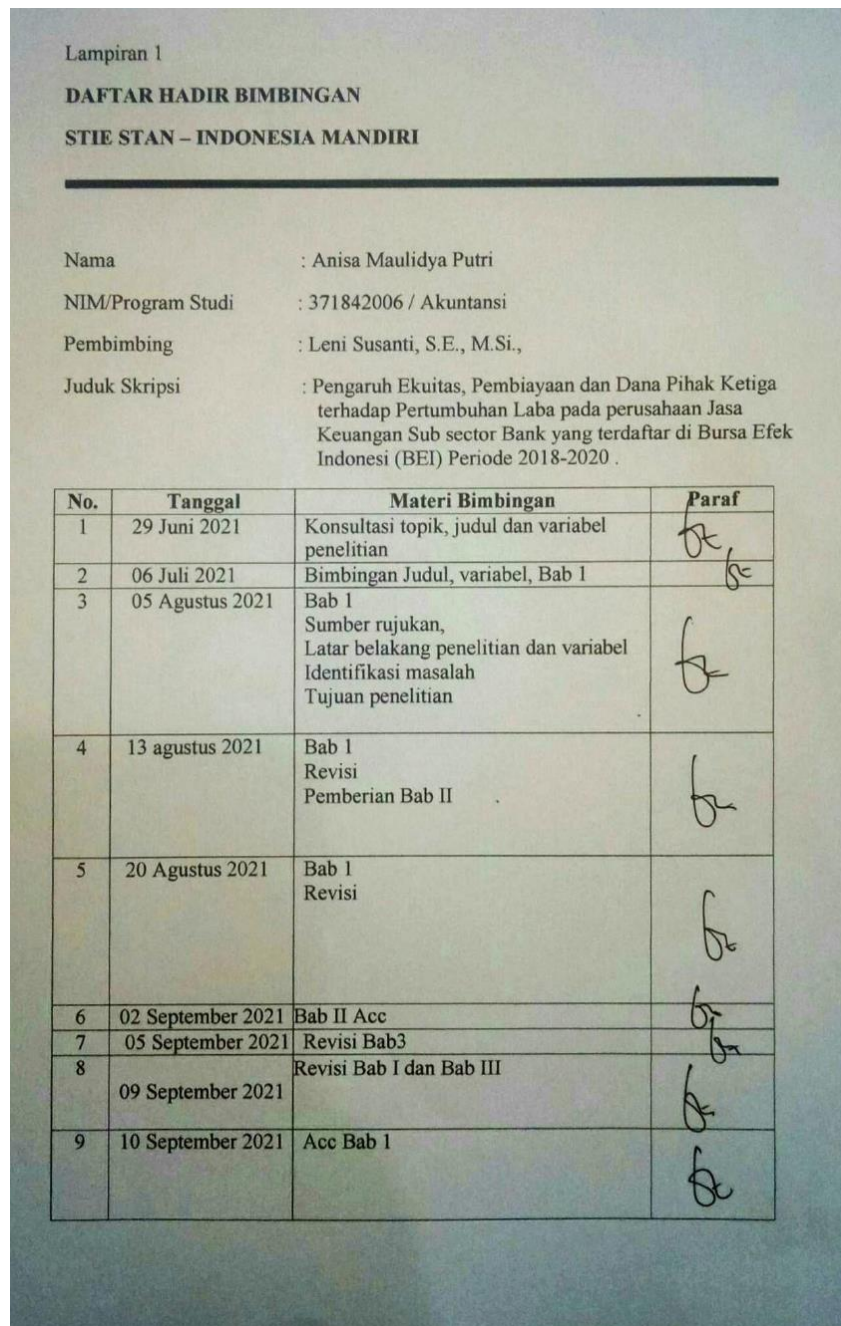 Lampiran 1
DAFTAR HADIR BIMBINGAN
STIE STAN – INDONESIA MANDIRI
Nama : Anisa Maulidya Putri
NIM/Program Studi : 371842006 / Akuntansi
Pembimbing : Leni Susanti, S.E., M.Si.,
Juduk Skripsi : Pengaruh Ekuitas, Pembiayaan dan Dana Pihak Ketiga
terhadap Pertumbuhan Laba pada perusahaan Jasa
Keuangan Sub sector Bank yang terdaftar di Bursa Efek
Indonesi (BEI) Periode 2018-2020 .
No. Tanggal Materi Bimbingan Paraf
1 29 Juni 2021 Konsultasi topik, judul dan variabel
penelitian
2 06 Juli 2021 Bimbingan Judul, variabel, Bab 1
3 05 Agustus 2021 Bab 1
Sumber rujukan,
Latar belakang penelitian dan variabel
Identifikasi masalah
Tujuan penelitian
4 13 agustus 2021 Bab 1
Revisi
Pemberian Bab II
5 20 Agustus 2021 Bab 1
Revisi
6 02 September 2021 Bab II Acc
7 05 September 2021 Revisi Bab3
8 Revisi Bab I dan Bab III
09 September 2021
9 10 September 2021 Acc Bab 1